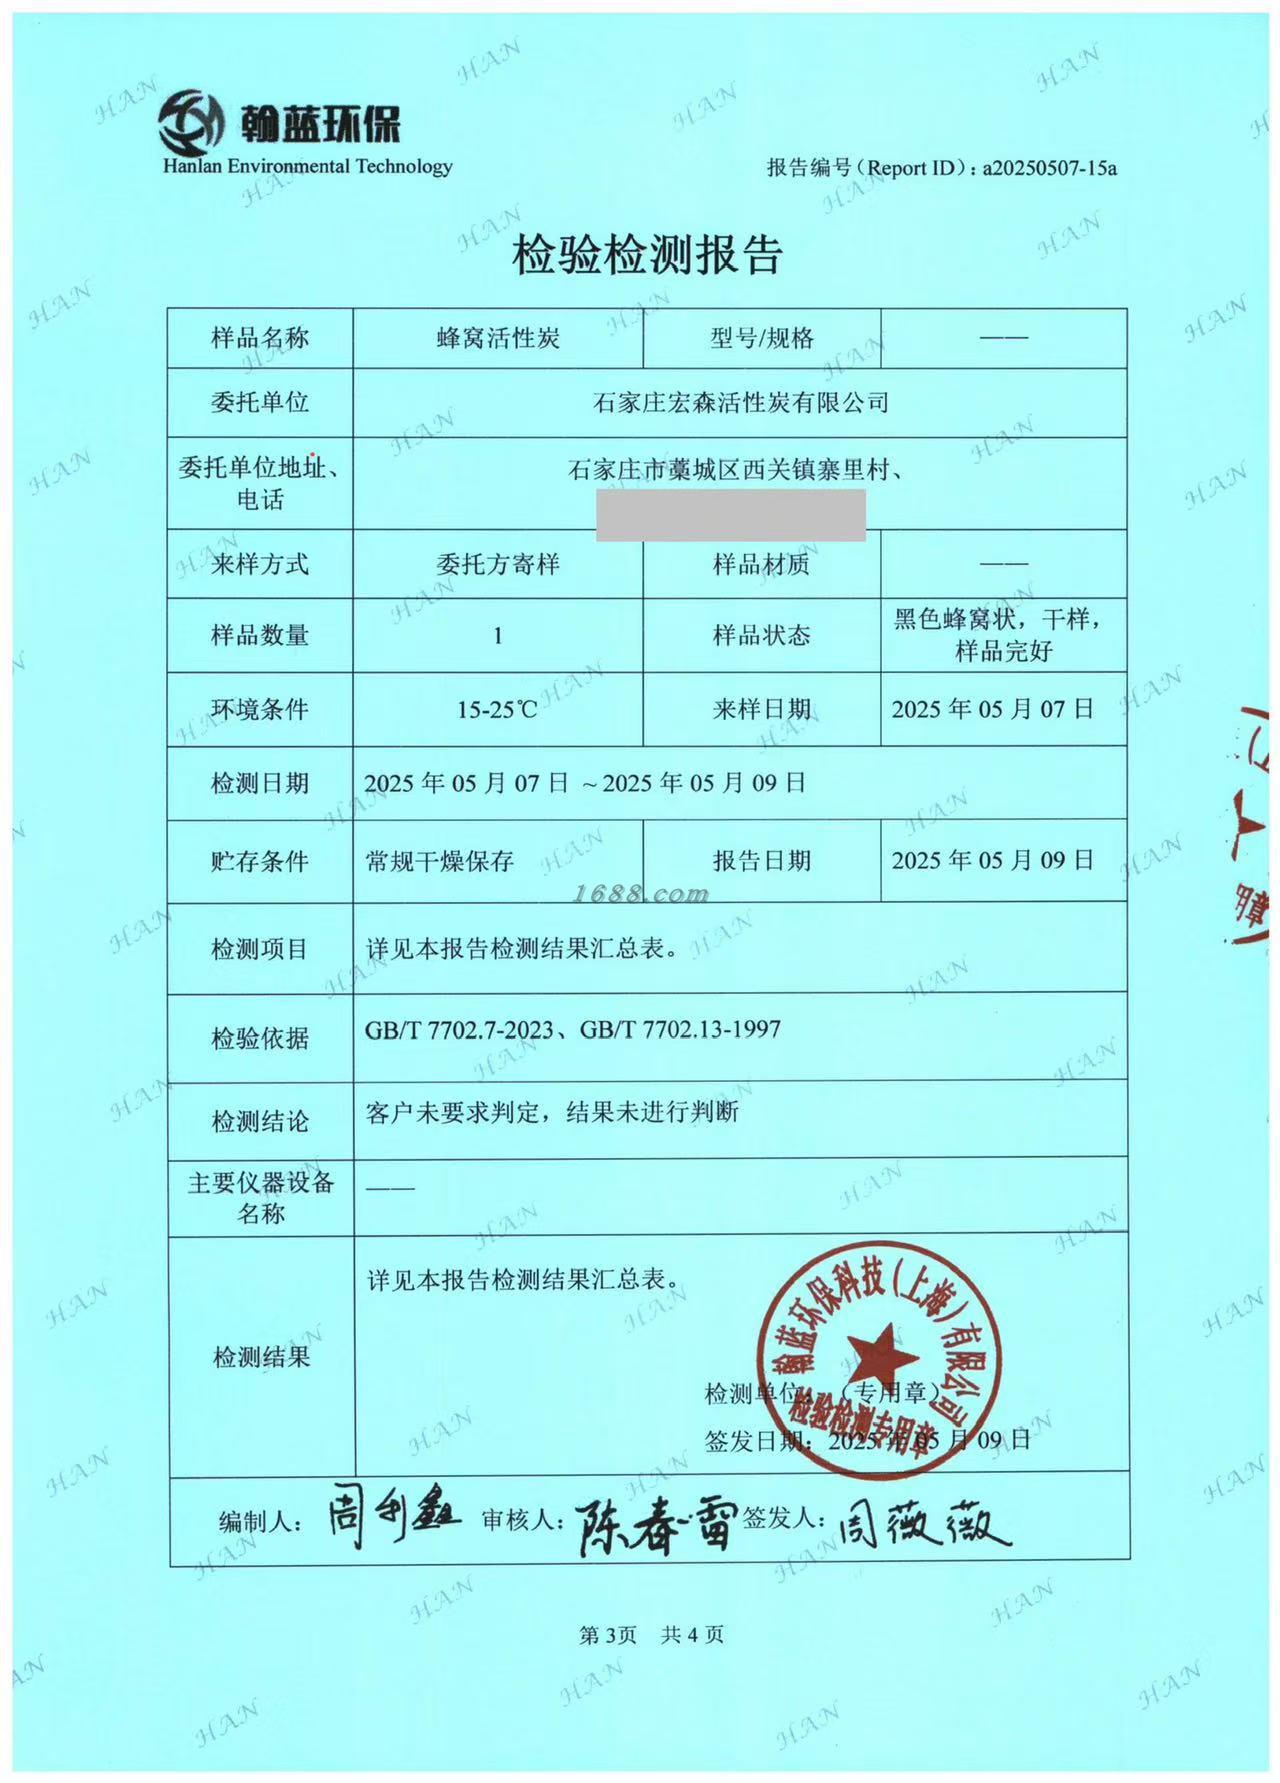 翰蓝环保
Hanlan Environmental Technology
报告编号(Report ID):a20250507-15a
检验检测报告
样品名称 蜂窝活性炭 型号/规格 ——
委托单位 石家庄宏森活性炭有限公司
委托单位地址、
电话
石家庄市藁城区西关镇寨里村、
来样方式 委托方寄样 样品材质 ——
样品数量 1 样品状态
黑色蜂窝状，干样，
样品完好
环境条件 15-25℃ 来样日期 2025 年 05 月 07 日
检测日期 2025 年 05 月 07 日 ~ 2025 年 05 月 09 日
贮存条件 常规干燥保存 报告日期 2025 年 05 月 09 日
1688.com
检测项目 详见本报告检测结果汇总表。
检验依据 GB/T 7702.7-2023、GB/T 7702.13-1997
检测结论 客户未要求判定，结果未进行判断
主要仪器设备
名称
——
检测结果
详见本报告检测结果汇总表。
翰蓝环保科技(上海)有限公司
检验检测专用章
检测单位：（专用章）
签发日期：2025 年 05 月 09 日
编制人：周利鑫 审核人：陈春雷 签发人：周薇薇
第 3页 共 4 页
HAN